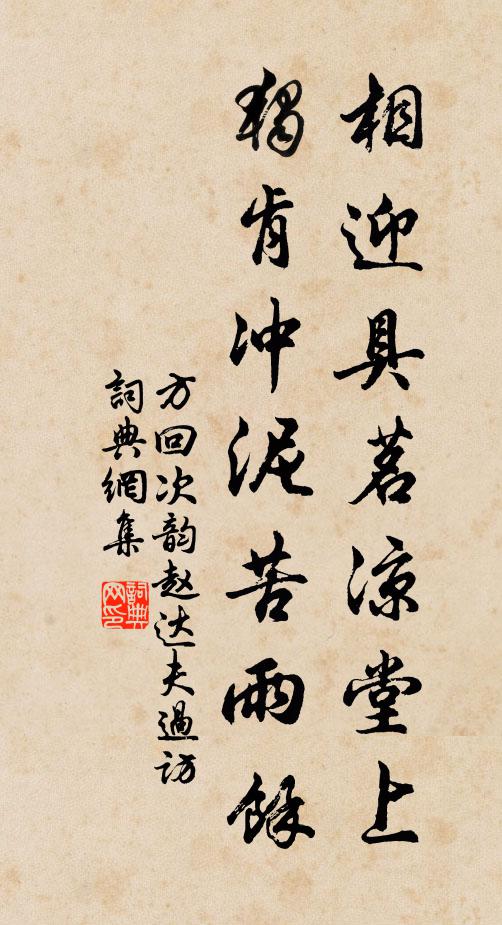 相迎具茗凉堂上
独肯冲泥苦雨馀
方回次韵赵达夫過访
詞典網集
詞典
网印